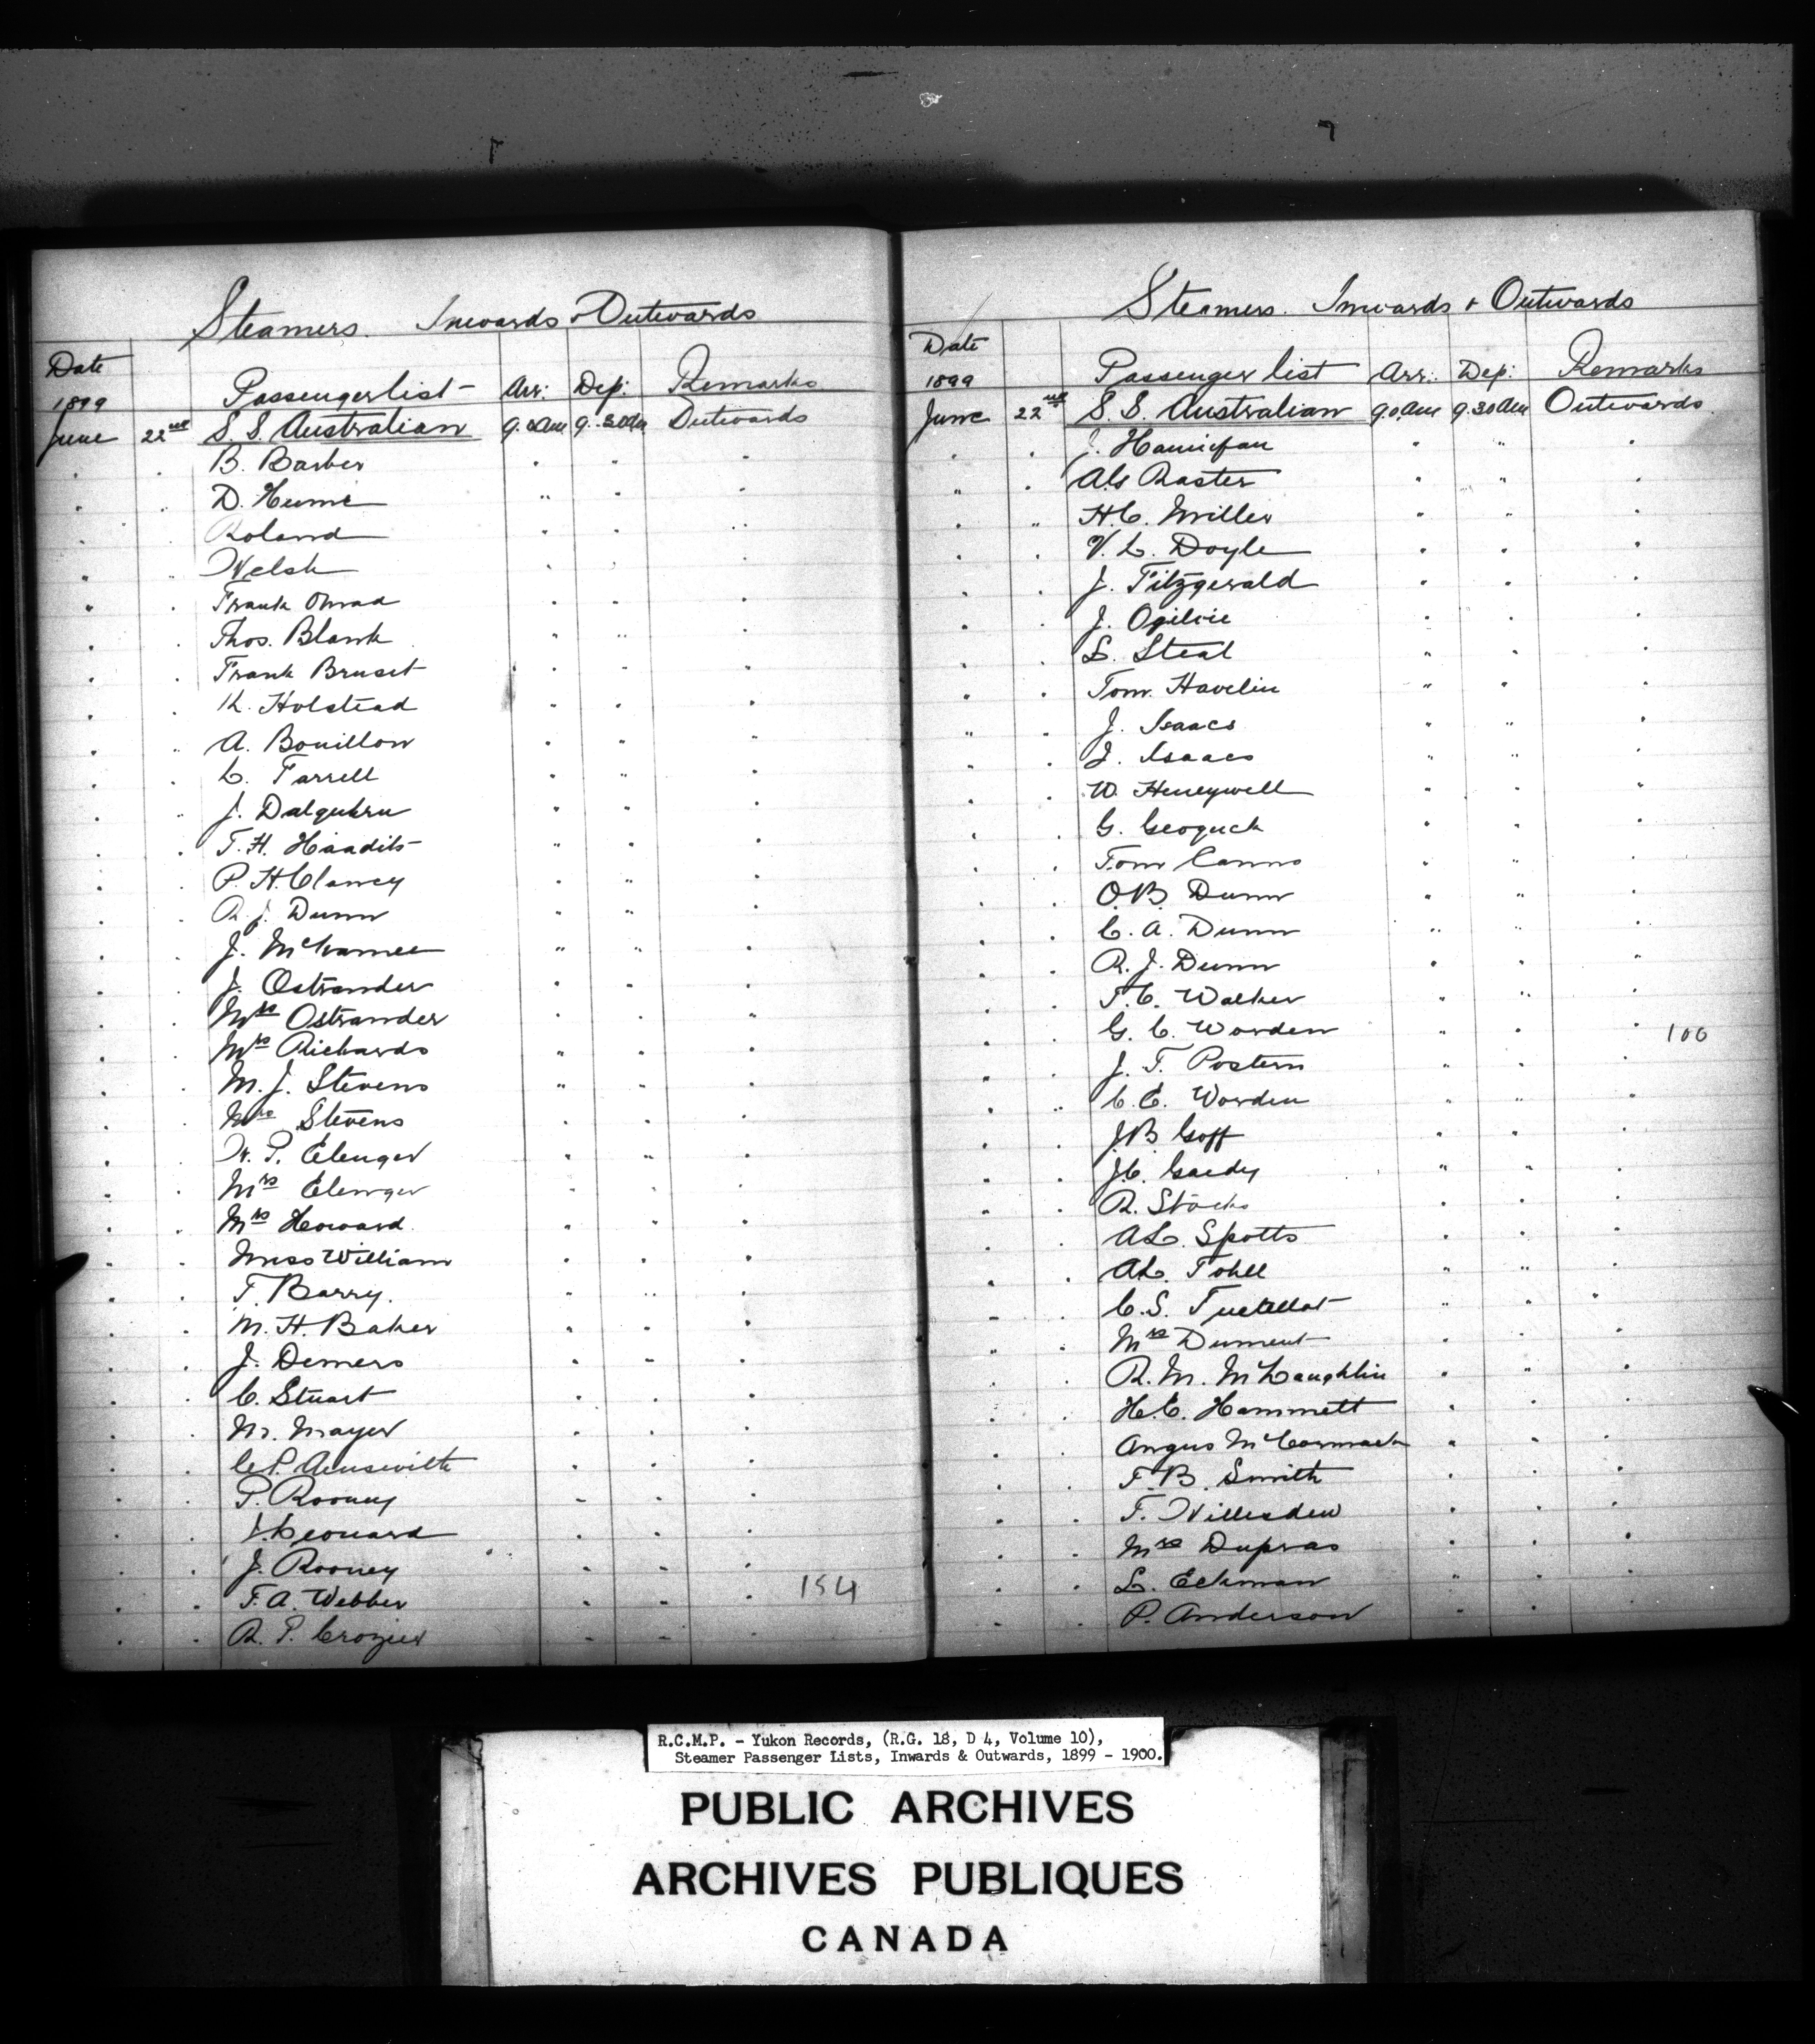 Steamers. Inwards & Outwards
Date
1899 Passenger list Arr: Dep: Remarks
June 22nd S. S. Australian 9.0 Am 9.30 Am Outwards
B. Barber
D. Hume
Roland
Welsh
Frank
Thos. Blank
Frank Bruset
K. Holstead
A. Bouillon
L. Farrell
J.
T. H.
P. H. Clancy
R. J. Dunn
J. McNamee
J. Ostrander
Mrs Ostrander
Mrs Richards
M. J. Stevens
Mrs Stevens
W. P. Elenger
Mrs Elenger
Mrs Howard
Miss William
T. Barry.
M. H. Baker
J. Demers
C. Stuart
Mr. Mayer
C. P.
P. Rooney
J. Leonard
J. Rooney
F. A. Webber 154
R. P. Crozier
Steamers. Inwards & Outwards
Date
1899 Passenger list Arr: Dep: Remarks
June 22nd S. S. Australian 9.0 Am 9.30 Am Outwards
J.
Raster
H. C. Miller
V. L. Doyle
J. Fitzgerald
J. Ogilvie
L. Steal
Tom. Havelin
J. Isaacs
J. Isaacs
W. Heneywell
G.
Tom Canns
O. B. Dunn
C. A. Dunn
R. J. Dunn
T. C. Walker
G. C. Worden 100
J. T. Postern
C. E. Worden
J. B. Goff
J. C.
R. Stocks
A. L. Spotts
A. L. Tohll
C. S.
Mrs Dument
R. M. McLaughlin
H. E. Hammett
Angus McCormack
F. B. Smith
F. Willesden
Mrs Dupras
L. Eckman
P. Anderson
R.C.M.P. - Yukon Records, (R.G. 18, D 4, Volume 10),
Steamer Passenger Lists, Inwards & Outwards, 1899 - 1900.
PUBLIC ARCHIVES
ARCHIVES PUBLIQUES
CANADA